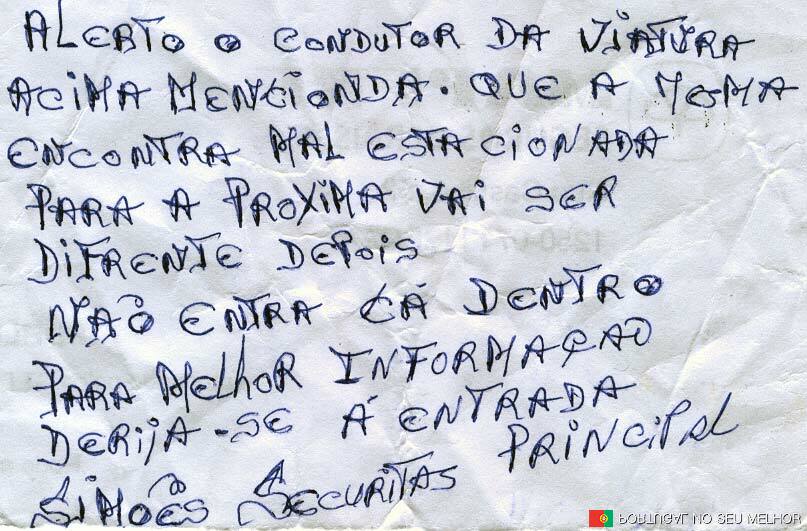 ALERTO O CONDUTOR DA VIATURA
ACIMA MENCIONDA. QUE A MESMA
ENCONTRA MAL ESTACIONADA
PARA A PROXIMA VAI SER
DIFRENTE DEPOIS
NÃO ENTRA CÁ DENTRO
PARA MELHOR INFORMAÇAO
DERIJA-SE Á ENTRADA
PRINCIPAL
SIMOÊS SECURITAS
PORTUGAL NO SEU MELHOR